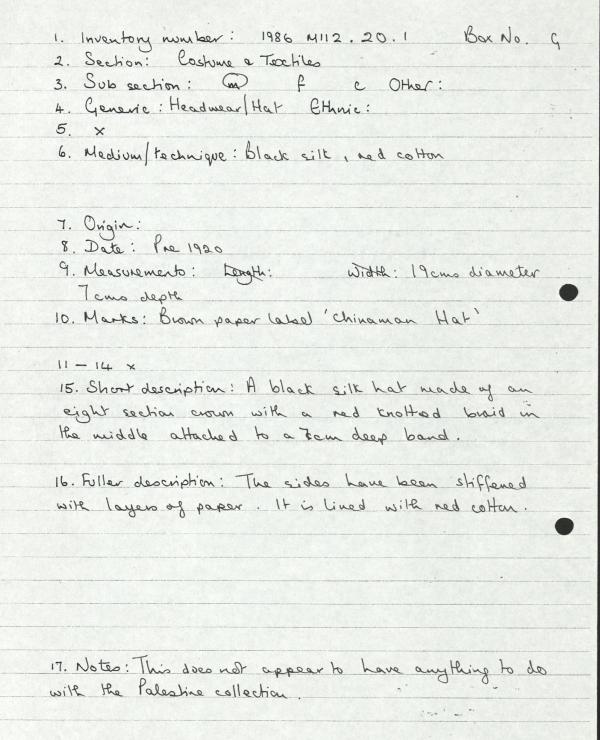 1. Inventory number: 1986 M112.20.1 Box No. G
2. Section: Costume & Textiles
3. Sub section: m f c Other:
4. Generic: Headwear/Hat Ethnic:
5. x
6. Medium/technique: Black silk, red cotton
7. Origin:
8. Date: Pre 1920
9. Measurements: Length: Width: 19cms diameter
7cms depth
10. Marks: Brown paper label 'Chinaman Hat'
11 - 14 x
15. Short description: A black silk hat made of an
eight section crown with a red knotted braid in
the middle attached to a 7cm deep band.
16. Fuller description: The sides have been stiffened
with layers of paper. It is lined with red cotton.
17. Notes: This does not appear to have anything to do
with the Palestine collection.